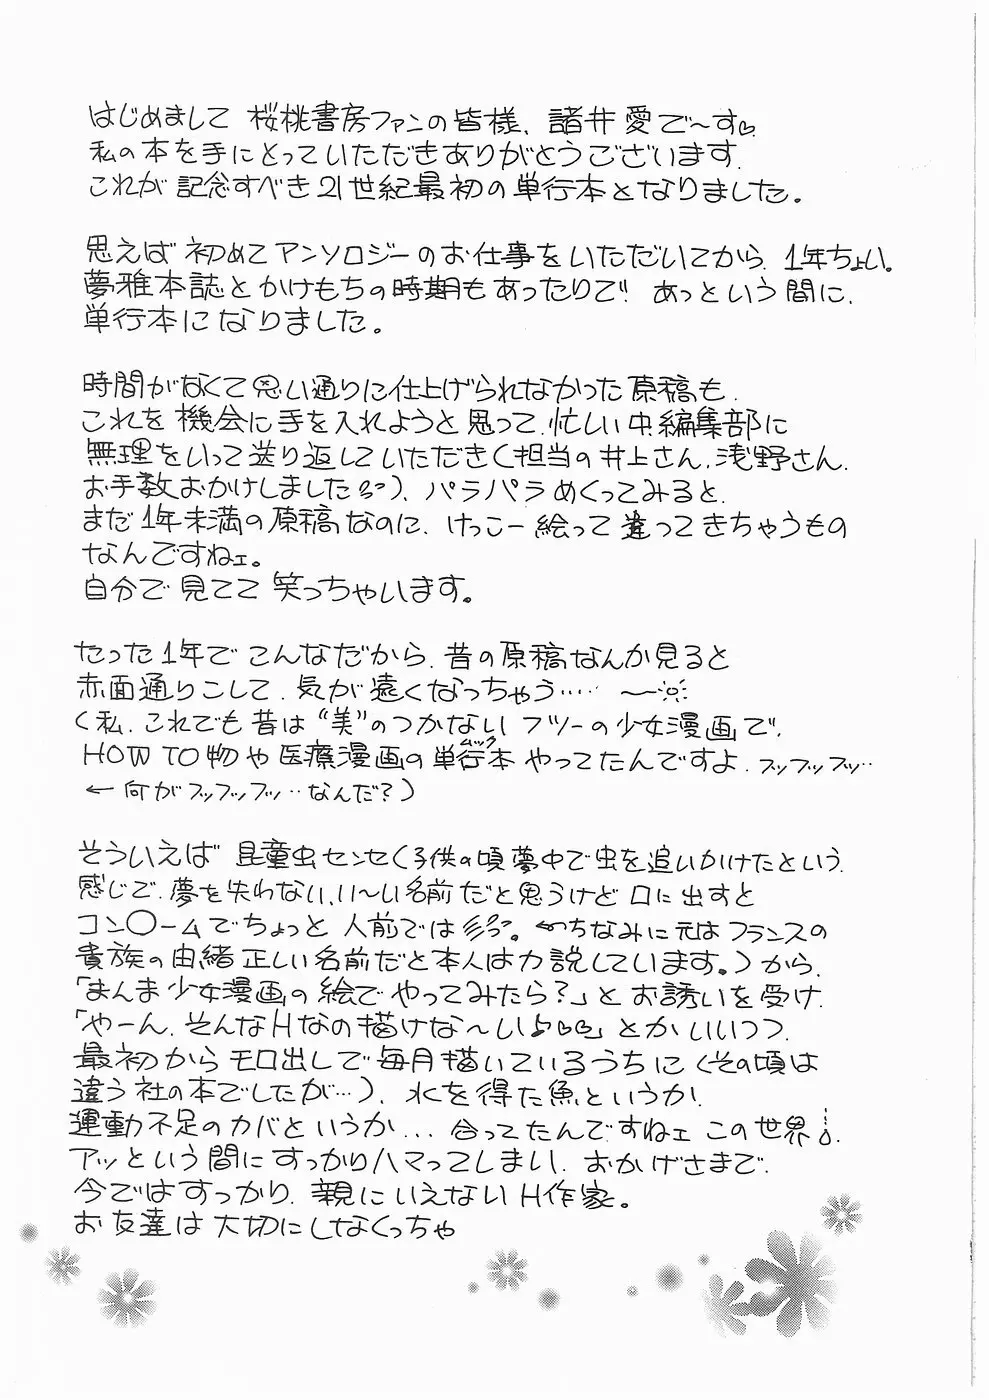 はじめまして 桜桃書房ファンの皆様、諸井愛で〜す♡
私の本を手にとっていただきありがとうございます。
これが記念すべき21世紀最初の単行本となりました。
思えば初めてアンソロジーのお仕事をいただいてから、1年ちょい。
夢雅本誌とかけもちの時期もあったりで! あっという間に、
単行本になりました。
時間がなくて思い通りに仕上げられなかった原稿も、
これを機会に手を入れようと思って、忙しい中、編集部に
無理をいって送り返していただき(担当の井上さん、浅野さん、
お手数おかけしました)、パラパラめくってみると、
まだ1年未満の原稿なのに、けっこー絵って違ってきちゃうもの
なんですねェ。
自分で見てて笑っちゃいます。
たった1年でこんなだから、昔の原稿なんか見ると
赤面通りこして、気が遠くなっちゃう‥‥
(私、これでも昔は“美”のつかないフツーの少女漫画で、
HOW TO物や医療漫画の単行本ムックやってたんですよ、プップップッ‥
←何がプップップッ‥なんだ?)
そういえば 昆童虫センセ(子供の頃夢中で虫を追いかけたという
感じで、夢を失わない、い〜い名前だと思うけど口に出すと
コン〇ームでちょっと人前では。←ちなみに元はフランスの
貴族の由緒正しい名前だと本人は力説しています。)から、
「まんま少女漫画の絵でやってみたら?」とお誘いを受け、
「やーん、そんなHなの描けな〜い♪♡♡」とかいいつつ、
最初からモロ出しで毎月描いているうちに(その頃は
違う社の本でしたが…)、水を得た魚というか、
運動不足のカバというか...合ってたんですねェ この世界。
アッという間にすっかりハマってしまい、おかげさまで、
今ではすっかり、親にいえないH作家。
お友達は大切にしなくっちゃ